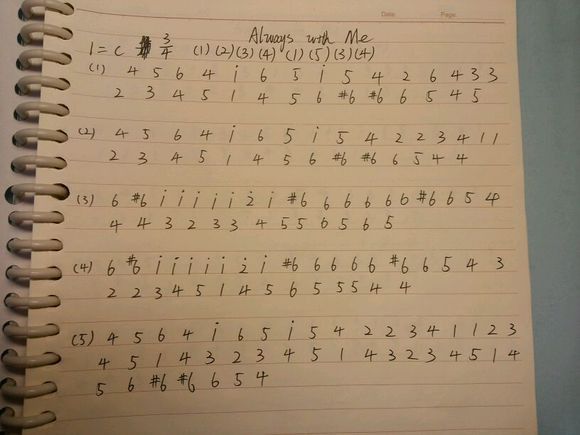 Date: Page:
Always with Me
1=C 3/4 (1)(2)(3)(4) (1)(5)(3)(4)
(1) 4 5 6 4 i 6 5 i 5 4 2 6 4 3 3
2 3 4 5 1 4 5 6 #6 #6 6 5 4 5
(2) 4 5 6 4 i 6 5 i 5 4 2 2 3 4 1 1
2 3 4 5 1 4 5 6 #6 #6 6 5 4 4
(3) 6 #6 i i i i i 2̇ i #6 6 6 6 6 6 #6 6 5 4
4 4 3 2 3 3 4 5 5 6 5 6 5
(4) 6 #6 i i i i i 2̇ i #6 6 6 6 6 #6 6 5 4 3
2 2 3 4 5 1 4 5 6 5 5 5 4 4
(5) 4 5 6 4 i 6 5 i 5 4 2 2 3 4 1 1 2 3
4 5 1 4 3 2 3 4 5 1 4 3 2 3 4 5 1 4
5 6 #6 #6 6 5 4